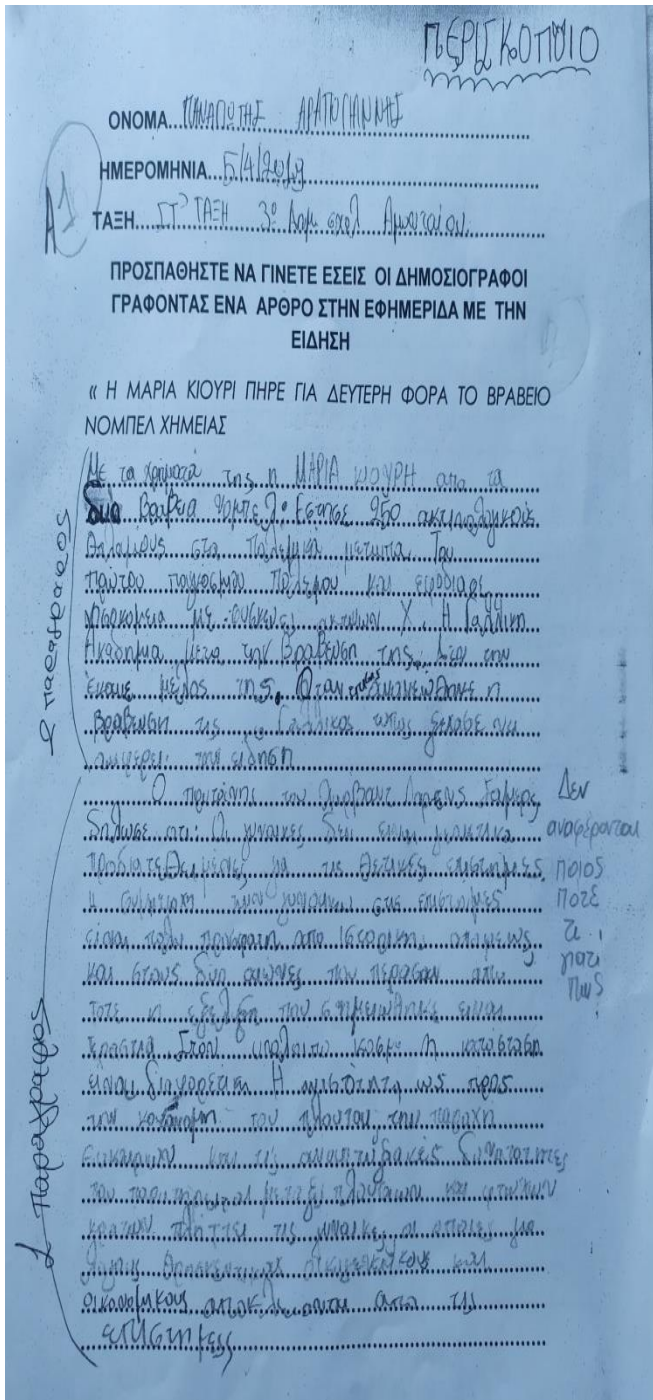 ΠΕΡΙΣΚΟΠΙΟ
ΟΝΟΜΑ...ΠΑΝΑΓΙΩΤΗΣ ΑΡΑΠΟΓΙΑΝΝΗΣ
ΗΜΕΡΟΜΗΝΙΑ...5/4/2019
Α1
ΤΑΞΗ...ΣΤ' ΤΑΞΗ 3ο Δημ σχολ Αμυνταίου
ΠΡΟΣΠΑΘΗΣΤΕ ΝΑ ΓΙΝΕΤΕ ΕΣΕΙΣ ΟΙ ΔΗΜΟΣΙΟΓΡΑΦΟΙ
ΓΡΑΦΟΝΤΑΣ ΕΝΑ ΑΡΘΡΟ ΣΤΗΝ ΕΦΗΜΕΡΙΔΑ ΜΕ ΤΗΝ
ΕΙΔΗΣΗ
« Η ΜΑΡΙΑ ΚΙΟΥΡΙ ΠΗΡΕ ΓΙΑ ΔΕΥΤΕΡΗ ΦΟΡΑ ΤΟ ΒΡΑΒΕΙΟ
ΝΟΜΠΕΛ ΧΗΜΕΙΑΣ
Με τα χρήματά της η ΜΑΡΙΑ ΚΙΟΥΡΗ απο τα
δυο βραβεια Νομπελ. Εστησε 250 ακτινολογικούς
θαλαμους στα πολεμικα μετωπα. Του
πρώτου παγκοσμιου πολεμου και εφοδιασε
νοσοκομεια με συσκευες ακτινων Χ. Η Γαλλικη
Ακαδημια μετα την βραβευση της δεν την
έκανε μελος της. Οταν ανακοινώθηκε η
βραβευση της, ο Γαλλικος τυπος ξεχασε να
αναφερει την ειδηση
2 παραγραφος
Ο πρυτανης του Χαρβαντ Λορενς Σαμερς
δηλωσε οτι: Οι γυναικες δεν ειναι γενετικα
προδιατεθειμενες για τις θετικες επιστημες.
Η συμμετοχη των γυναικων στις επιστημες
ειναι πολυ προσφατη απο ιστορικη αποψεως
και στους δυο αιωνες που περασαν απο
τοτε η εξελιξη που σημειωθηκε ειναι
τεραστια Στον υπολοιπο κοσμο η κατασταση
ειναι διαφορετικη Η ανισότητα ως προς
την κατανομη του πλουτου την παροχη
Ευκαιριων και τις αναπτυξιακες δυνατοτητες
που παρατηρειται μεταξυ πλουσιων και φτωχων
κρατων πληττει τις γυναικες οι οποιες για
λογους θρησκευτικους οικογενειακους και
οικονομικους αποκλειονται απο τις
επιστημες
1 παραγραφος
Δεν
αναφέρονται
ποιος
ποτε
τι,
γιατι
πως